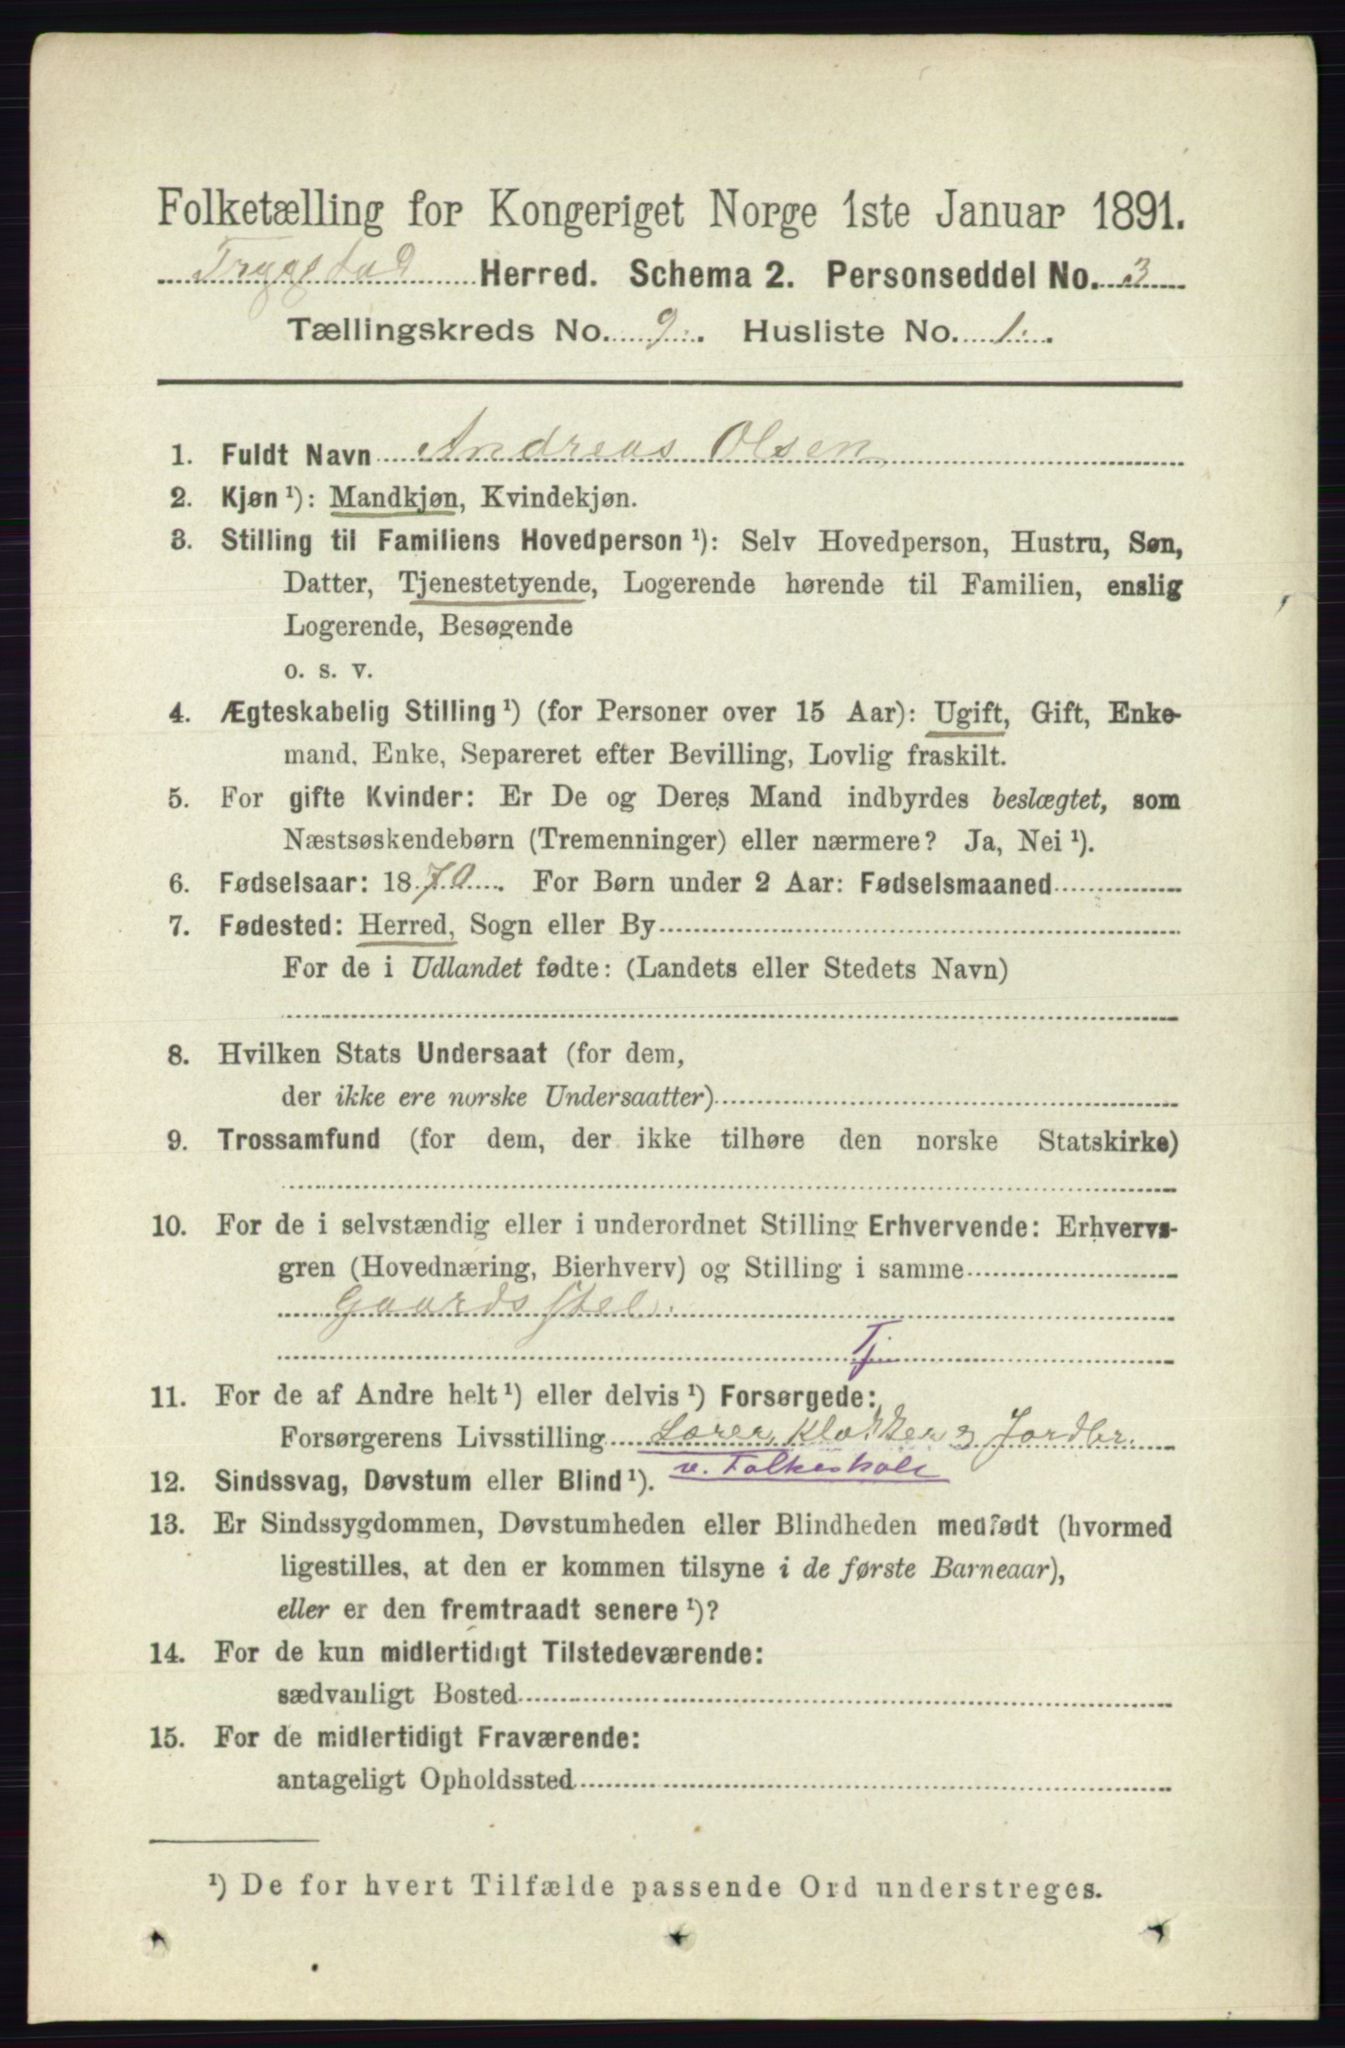 Folketælling for Kongeriget Norge 1ste Januar 1891.
Trygstad Herred. Schema 2. Personseddel No. 3
Tællingskreds No. 9. Husliste No. 1.
1. Fuldt Navn Andreas Olsen
2. Kjøn ¹): Mandkjøn, Kvindekjøn.
3. Stilling til Familiens Hovedperson ¹): Selv Hovedperson, Hustru, Søn,
Datter, Tjenestetyende, Logerende hørende til Familien, enslig
Logerende, Besøgende
o. s. v.
4. Ægteskabelig Stilling ¹) (for Personer over 15 Aar): Ugift, Gift, Enke-
mand, Enke, Separeret efter Bevilling, Lovlig fraskilt.
5. For gifte Kvinder: Er De og Deres Mand indbyrdes beslægtet, som
Næstsøskendebørn (Tremenninger) eller nærmere? Ja, Nei ¹).
6. Fødselsaar: 1870. For Børn under 2 Aar: Fødselsmaaned
7. Fødested: Herred, Sogn eller By
For de i Udlandet fødte: (Landets eller Stedets Navn)
8. Hvilken Stats Undersaat (for dem,
der ikke ere norske Undersaatter)
9. Trossamfund (for dem, der ikke tilhøre den norske Statskirke)
10. For de i selvstændig eller i underordnet Stilling Erhvervende: Erhvervs-
gren (Hovednæring, Bierhverv) og Stilling i samme
Gaardsstel.
Tj
11. For de af Andre helt ¹) eller delvis ¹) Forsørgede:
Forsørgerens Livsstilling Lærer, Klokker & Jordbr.
v. Folkeskole
12. Sindssvag, Døvstum eller Blind ¹).
13. Er Sindssygdommen, Døvstumheden eller Blindheden medfødt (hvormed
ligestilles, at den er kommen tilsyne i de første Barneaar),
eller er den fremtraadt senere ¹)?
14. For de kun midlertidigt Tilstedeværende:
sædvanligt Bosted
15. For de midlertidigt Fraværende:
antageligt Opholdssted
¹) De for hvert Tilfælde passende Ord understreges.